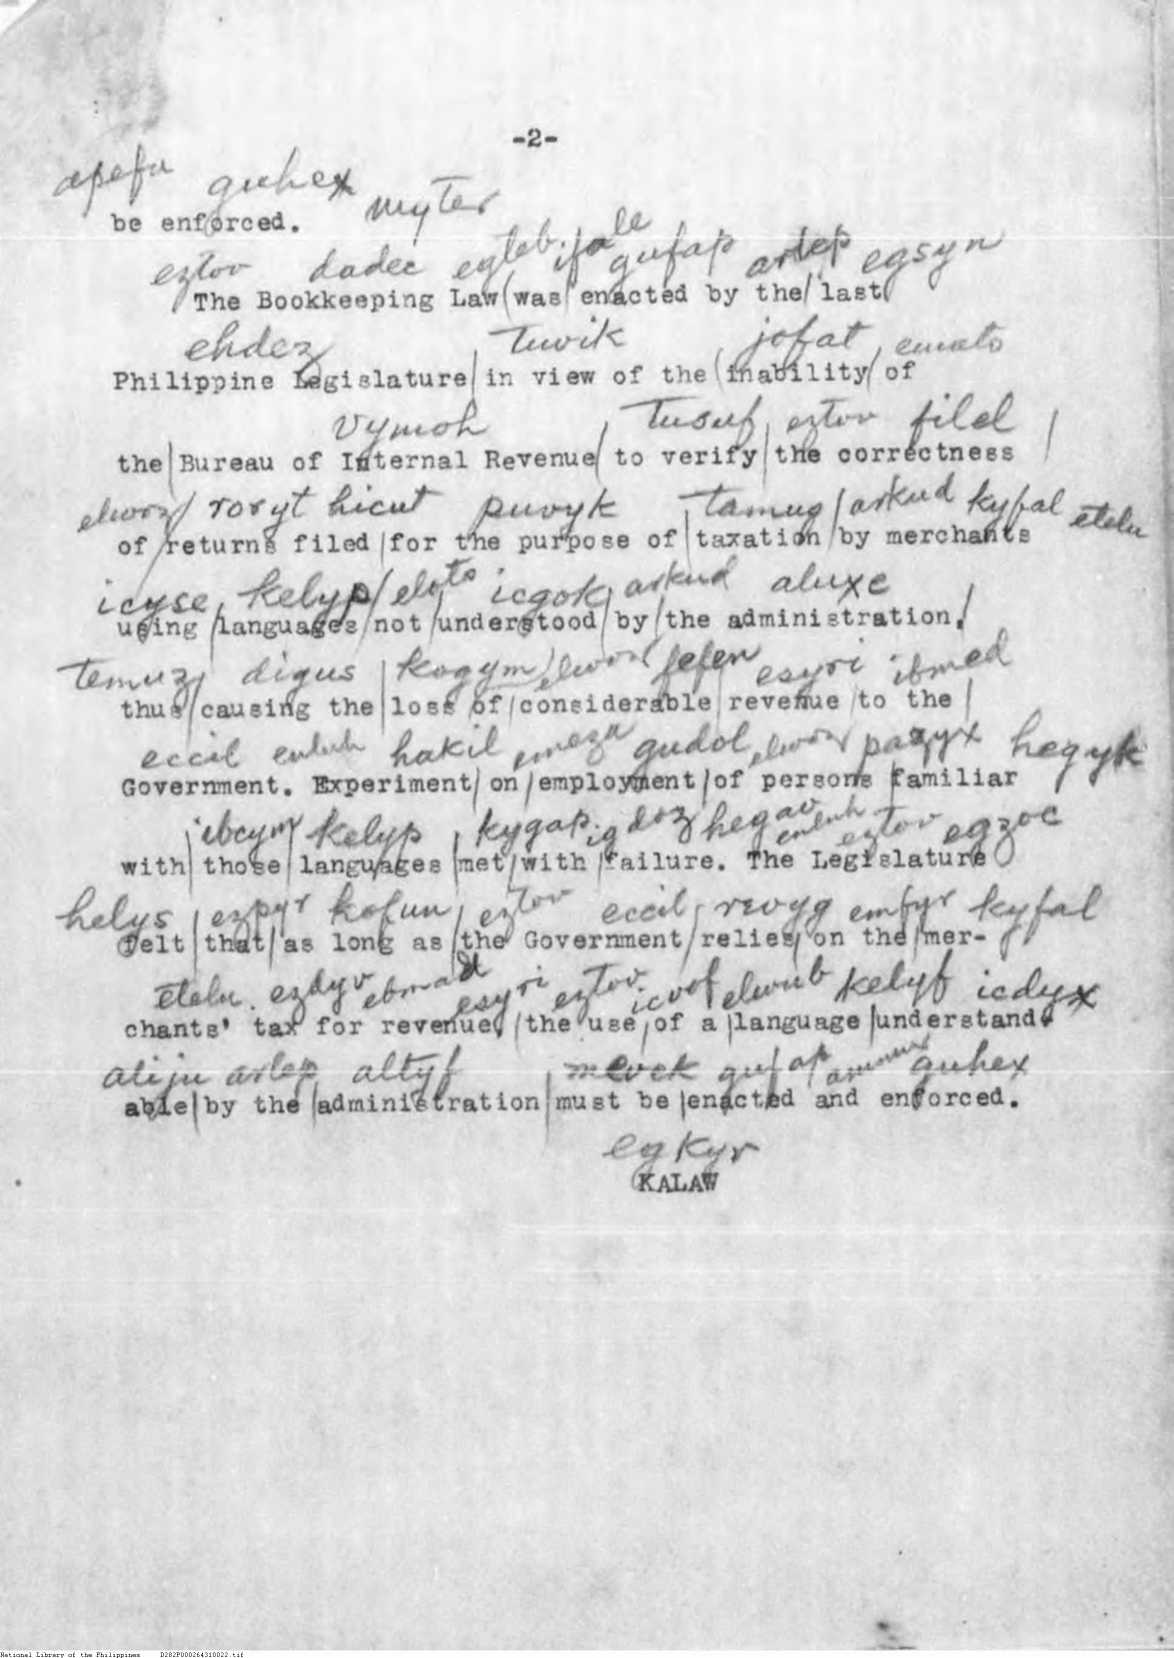 -2-
apefu guhex myter
be enforced.
eztov dadec egleb ifale gufap arlep egsyn
The Bookkeeping Law was enacted by the last
ehdez tuvik jofat emato
Philippine Legislature in view of the inability of
vymoh tusuf eztov filel
the Bureau of Internal Revenue to verify the correctness
elworz roryt hicut puvyk tamug arkud kyfal etelu
of returns filed for the purpose of taxation by merchants
icyse kelyp eloto icgok arkud aluxe
using languages not understood by the administration,
temuz digus kogym fefen esyri ibmed
thus causing the loss of considerable revenue to the
eccil enluh hakil emeza gudol pazyx hegyk
Government. Experiment on employment of persons familiar
ibcym kelyp kygap igdoz hegav enluh eztov egzoc
with those languages met with failure. The Legislature
helys ezpyr kofun eztov eccil revyg emfyr kyfal
felt that as long as the Government relies on the mer-
etelu ezdyv esyri eztov icvof elwub kelyf icdyx
chants' tax for revenue, the use of a language understand-
atiju arlep altyf mevck gufap guhex
able by the administration must be enacted and enforced.
egkyr
KALAW
National Library of the Philippines D282P000264310022.tif